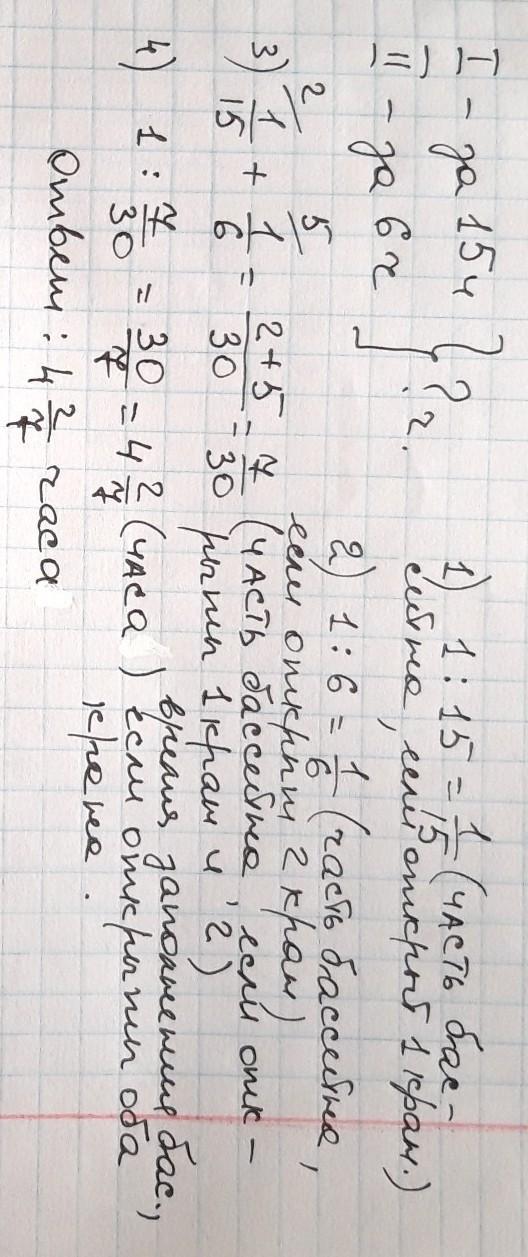 I – за 15 ч
II – за 6 ч } ? ч.
1) 1 : 15 = 1/15 (часть бас-
сейна, если открыт 1 кран.)
2) 1 : 6 = 1/6 (часть бассейна,
если открыт 2 кран)
3) 1/15 (2) + 1/6 (5) = (2+5)/30 = 7/30 (часть бассейна, если отк-
рыты 1 кран и 2)
4) 1 : 7/30 = 30/7 = 4 2/7 (часа) время заполнения бас.,
если открыты оба
крана.
Ответ : 4 2/7 часа